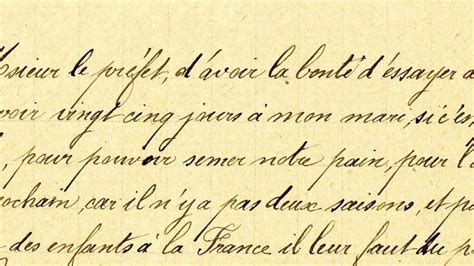 sieur le préfet, d'avoir la bonté d'éssayer a
voir vingt cinq jours à mon mari, si c'es
, pour pouvoir semer notre pain, pour l'
rochain, car il n'y a pas deux saisons, et po
des enfants à la France il leur faut du p